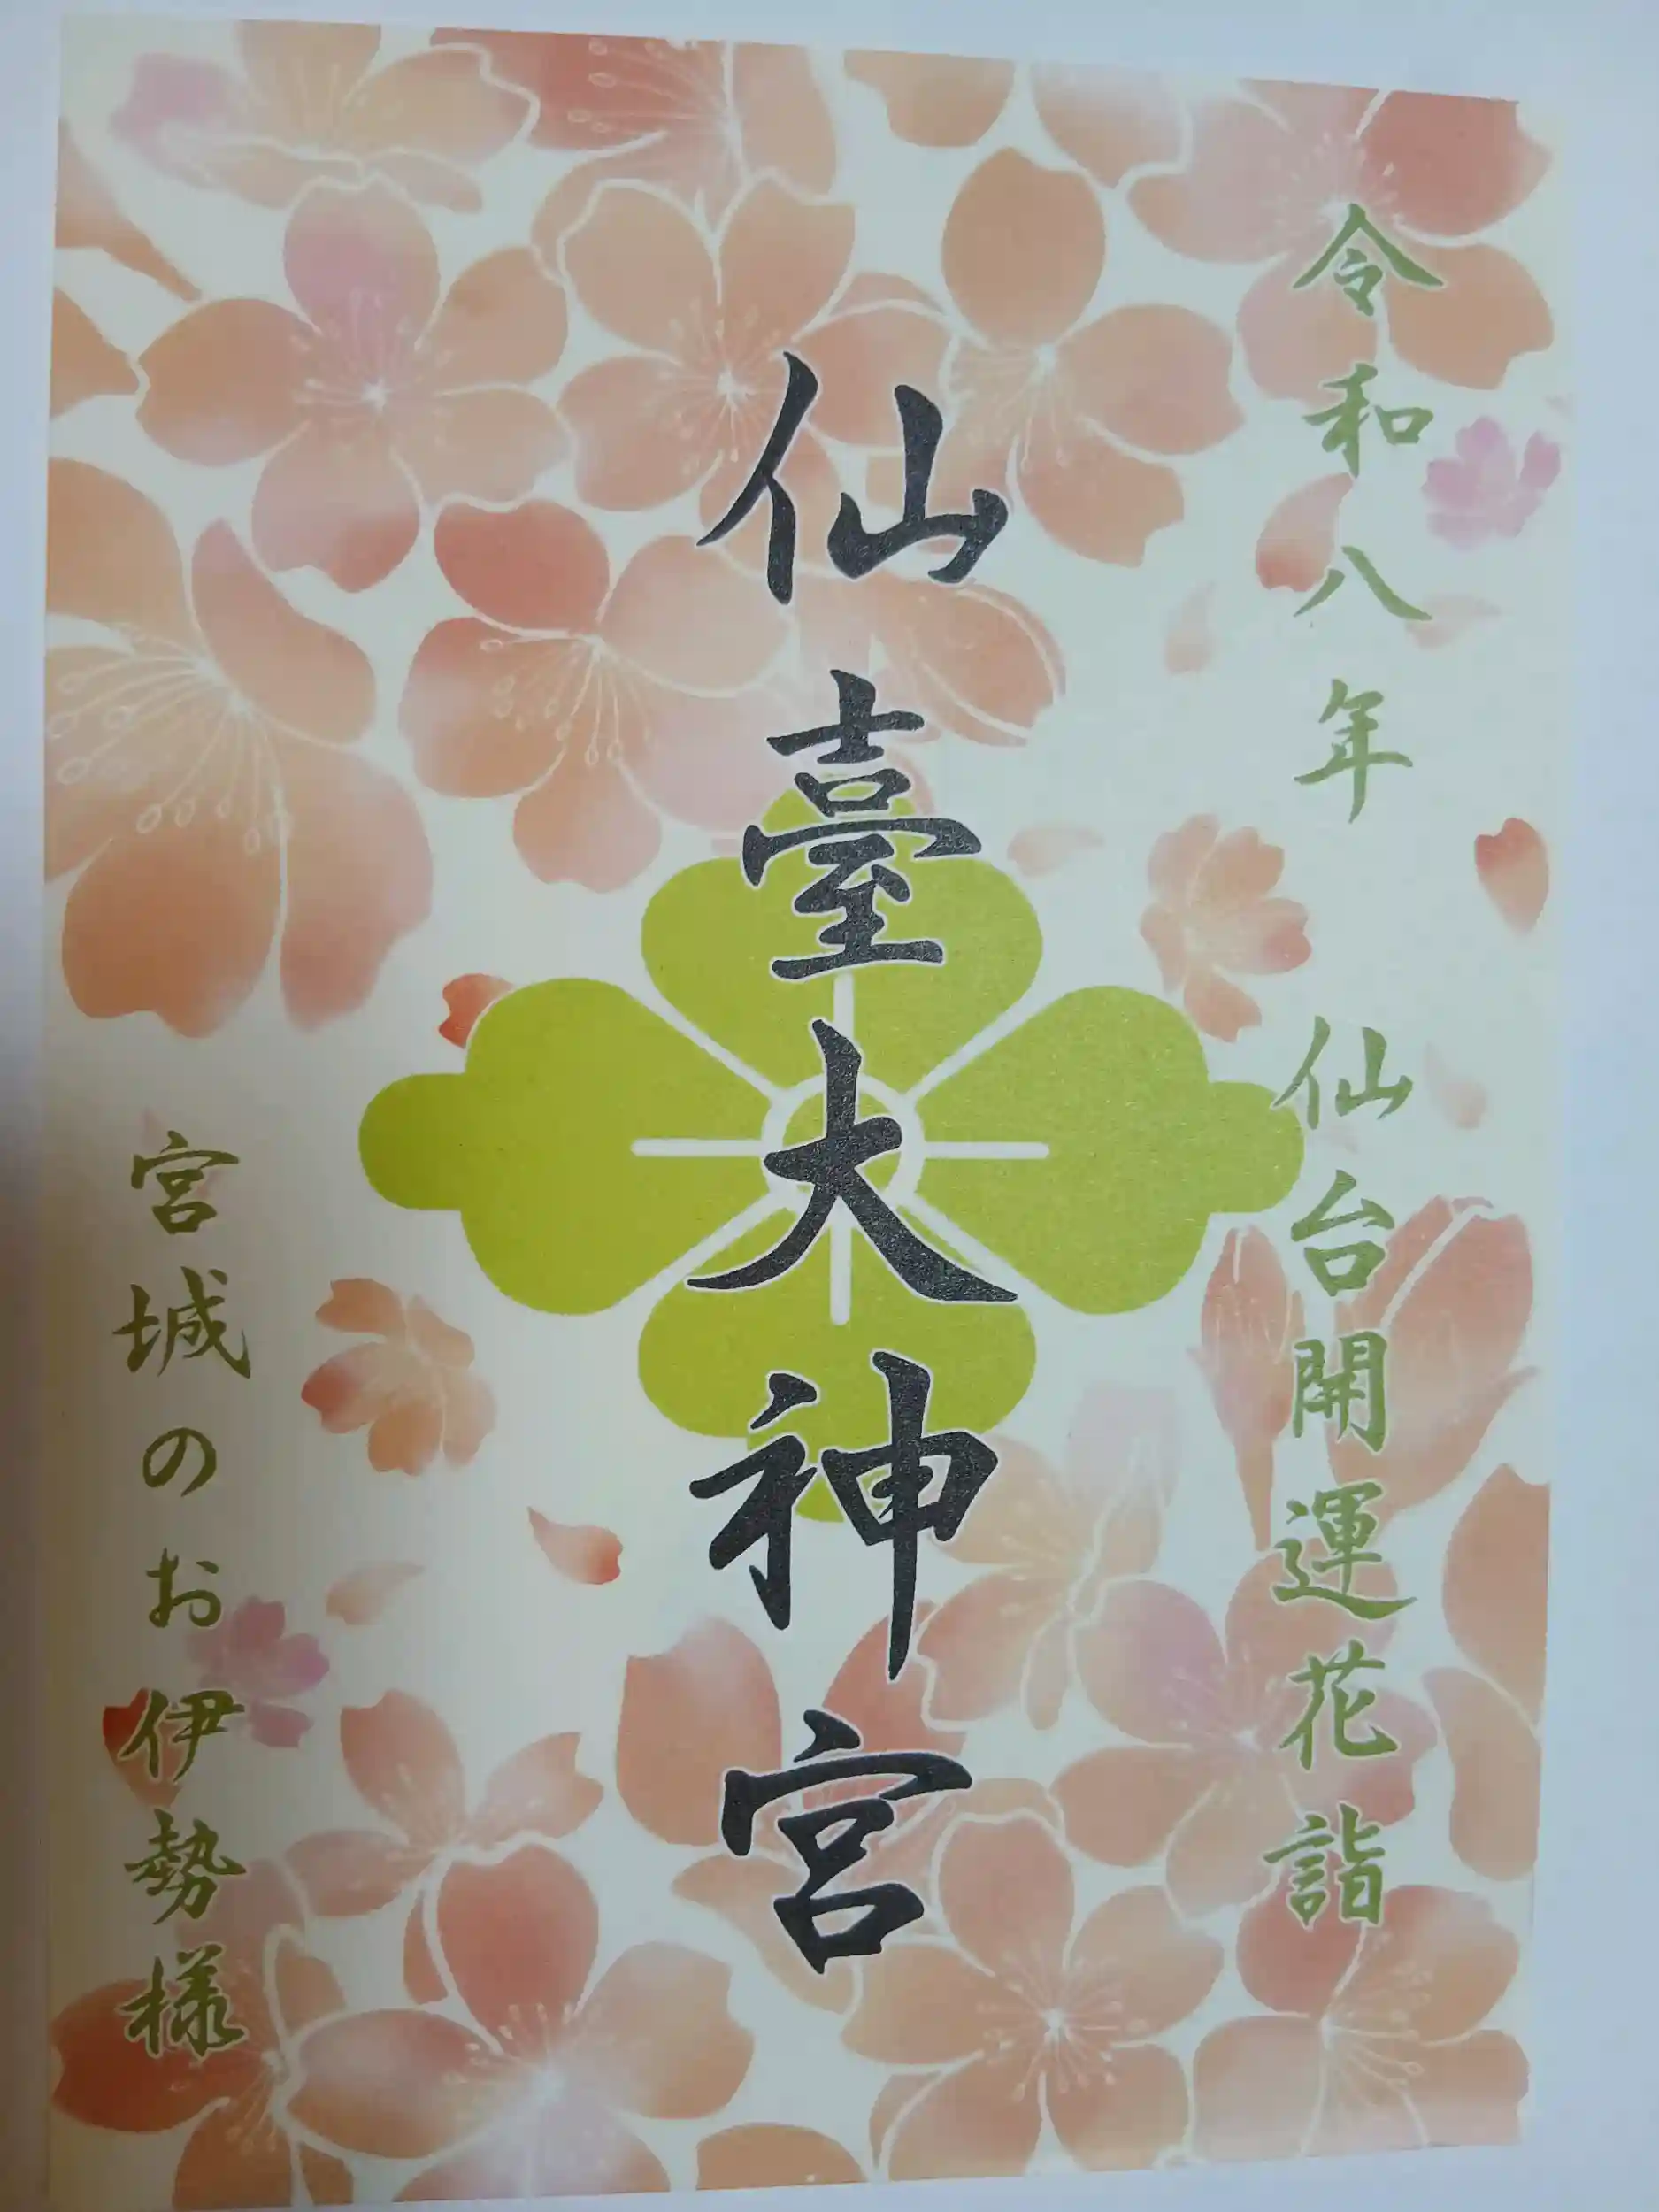 令和八年　仙台開運花詣
仙臺大神宮
宮城のお伊勢様